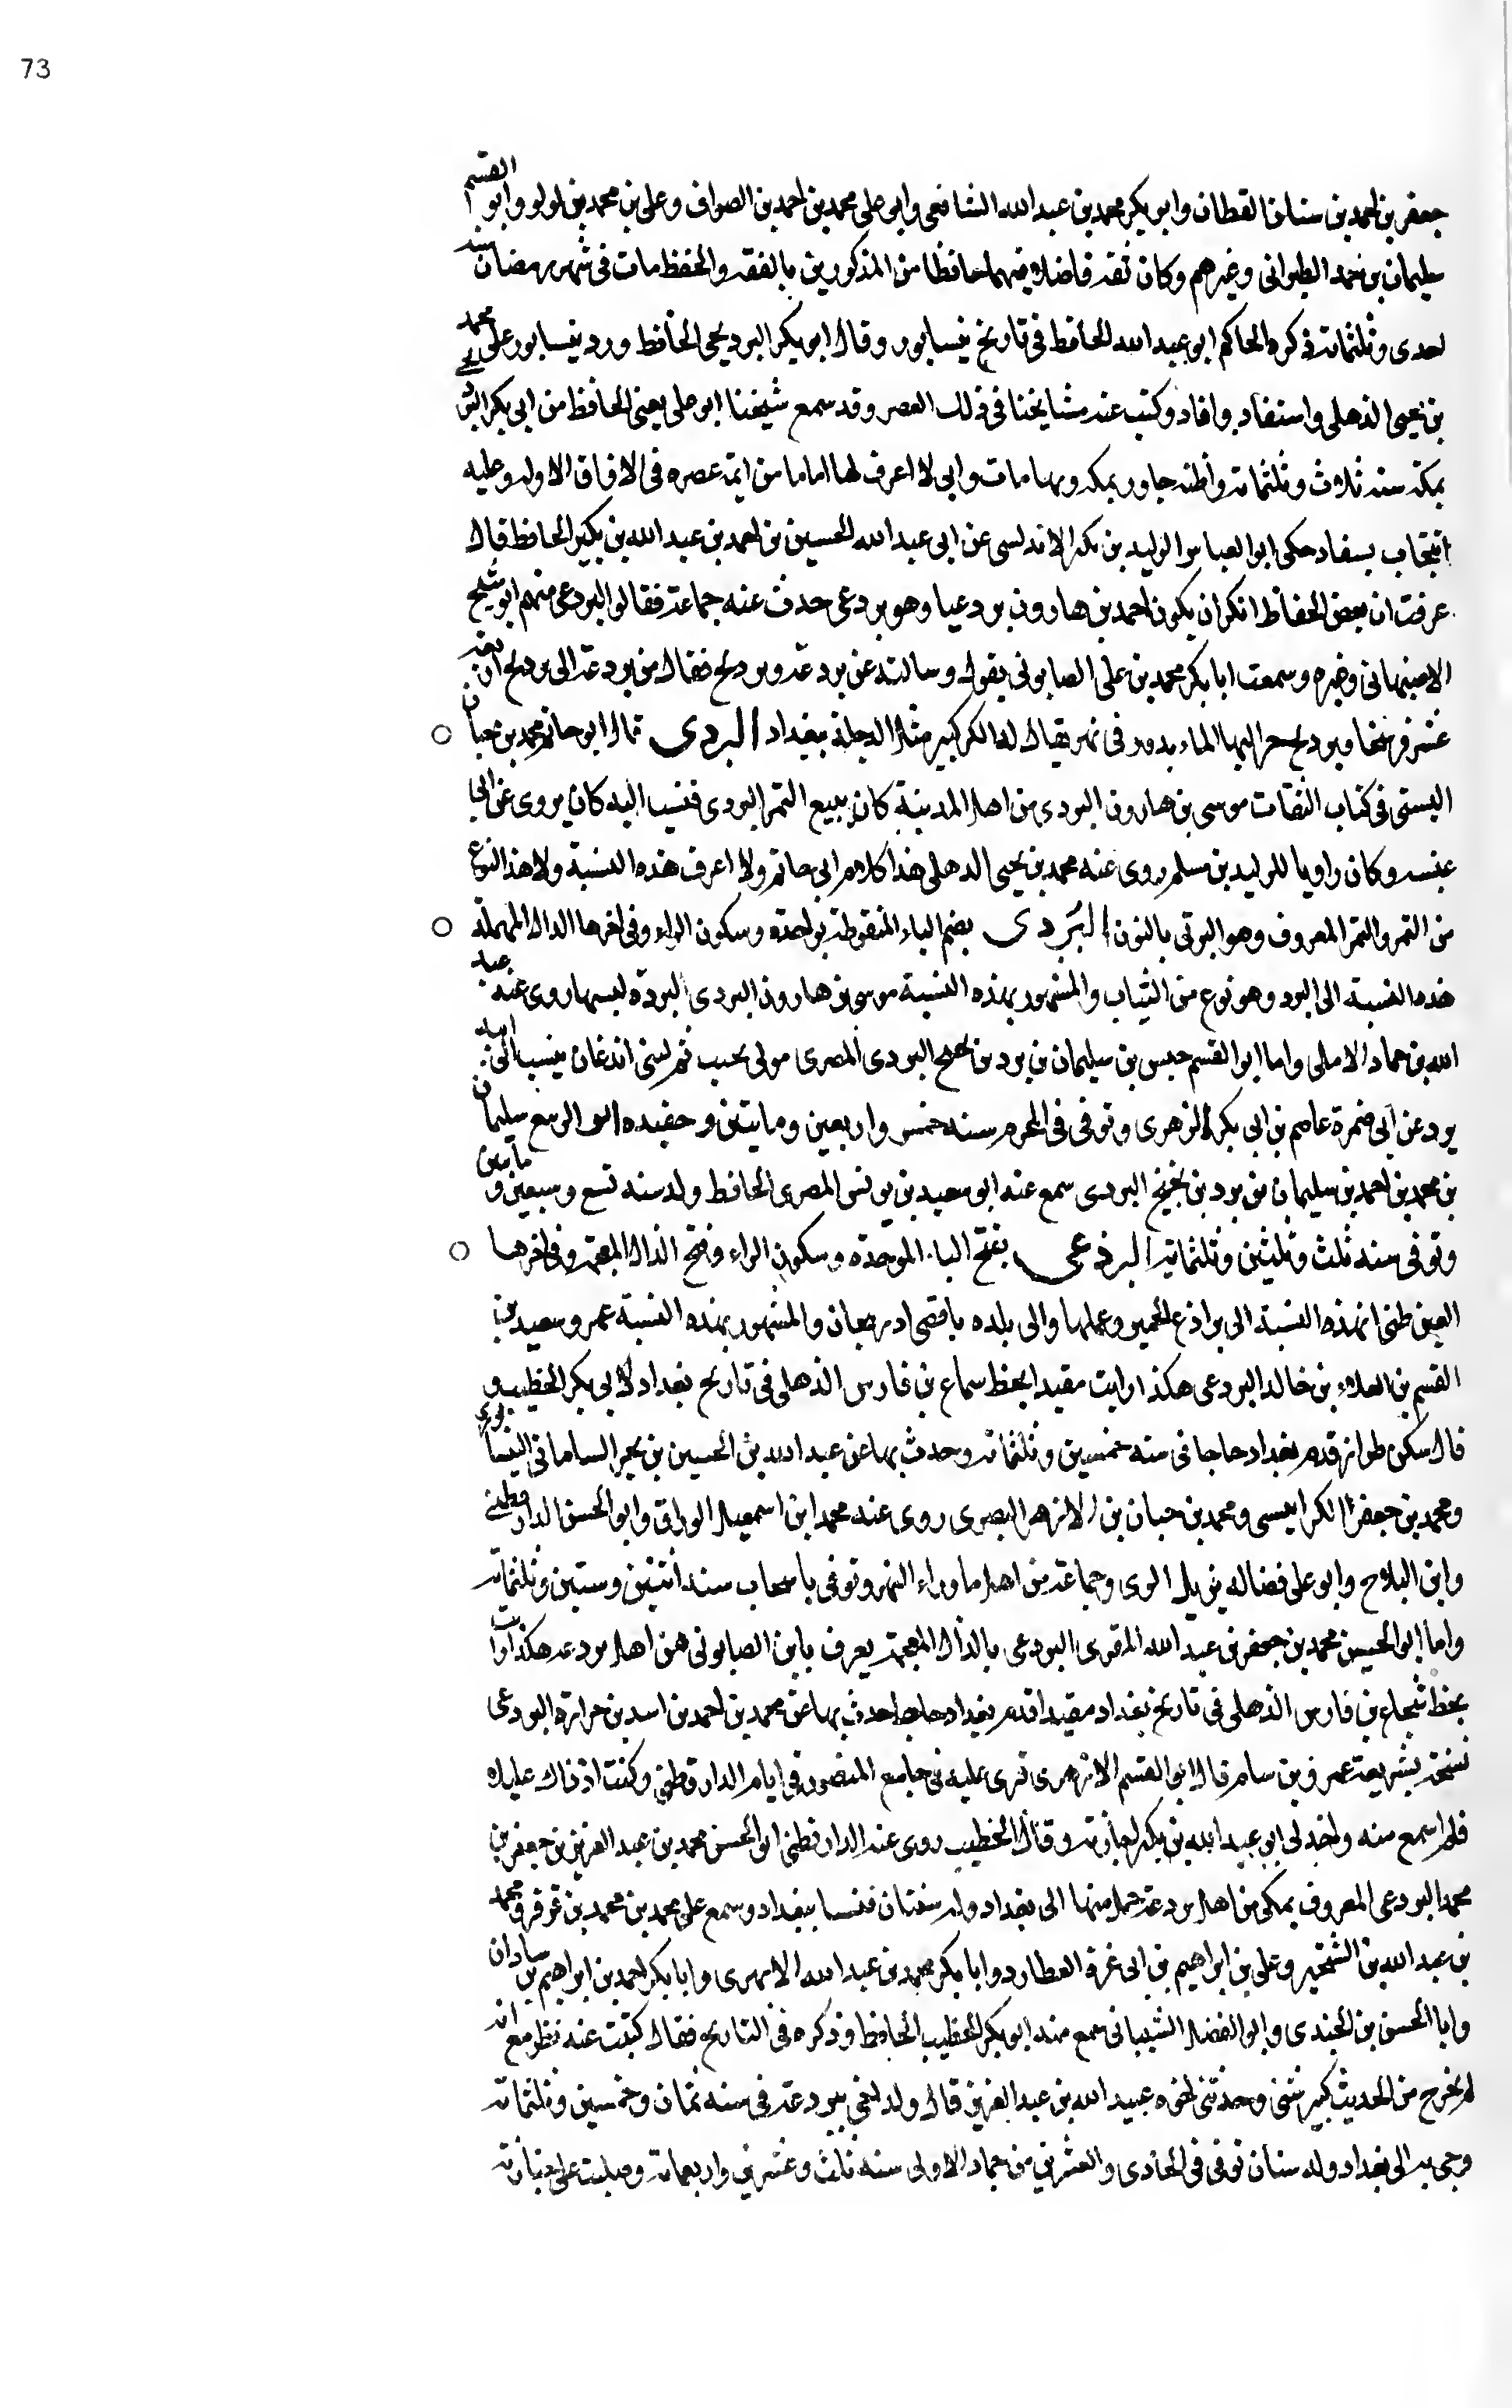 73
جعفر بن احمد بن سنان القطان وابو بكر محمد بن عبد الله الشافعى وابو على محمد بن احمد بن الصواف وعلى بن محمد بن لولو وابو القسم
سليمان بن احمد الطبرانى وغيرهم وكان ثقة فاضلا فهما حافظا من المذكورين بالفقه والحفظ مات فى شهر رمضان سنة
احدى وثلثمائة ذكره الحاكم ابو عبد الله الحافظ فى تاريخ نيسابور وقال ابو بكر البرديجى الحافظ ورد نيسابور على محمد
بن يحيى الذهلى واستفاد وافاد وكتب عنه مشايخنا فى ذلك العصر وقد سمع شيخنا ابو على يعنى الحافظ من ابى بكر البرديجى
بمكة سنة ثلاث وثلثمائة واظنه جاور بمكة وبها مات وانى لا اعرف لها اماما من ائمة عصره فى الافاق الا وله وعليه
انتخاب يستفاد حكى ابو العباس الوليد بن بكر الاندلسى عن ابى عبد الله الحسين بن احمد بن عبد الله بن بكير الحافظ قال
عرفت ان بعض الحفاظ انكر ان يكون احمد بن هارون برذعيا وهو بردعى حدث عنه جماعة فقالوا البردعى منهم ابو شيخ
الاصبهانى وغيره وسمعت ابا بكر محمد بن على الصابونى يقول وسالته عن بردعة وبرديج فقال من بردعة الى برديج اربعة
عشر فرسخا وبرديج اليها الماء يدور فى نهر يقال له الكر كبير مثل الدجلة ببغداد البردى قال ابو حاتم محمد بن حبان
البستى فى كتاب الثقات موسى بن هارون البردى من اهل المدينة كان يبيع التمر البردى فنسب اليه كان يروى عن ابى
عنبسه وكان راويا للوليد بن مسلم روى عنه محمد بن يحيى الذهلى هذا كلام ابى حاتم ولا اعرف هذه النسبة ولا هذا النوع
من التمر والتمر المعروف وهو البرنى بالنون البُردى بضم الباء المنقوطة بواحدة وسكون الراء وفى اخرها الدال المهملة
هذه النسبة الى البرد وهو نوع من الثياب والمشهور بهذه النسبة موسى بن هارون البردى البردة لبسها روى عنه عبد
الله بن حماد الاملى واما ابو القسم حبس بن سليمان بن برد بن نجيح البردى المصرى مولى تجيب ثم لبنى اندعان ينسب الى ابيه
يود عن ابى ضمرة عاصم بن ابى بكر الزهرى وتوفى فى المحرم سنه خمس واربعين ومايتين وحفيده ابو الربيع سليمان
بن محمد بن احمد بن سليمان بن برد بن نجيح البردى سمع عنه ابو سعيد بن يونس المصرى الحافظ ولد سنه تسع وسبعين ومايتين
وتوفى سنه ثلث وثلثين وثلثمائة البرذعى بفتح الباء الموحدة وسكون الراء وفتح الذال المعجمة وفى اخرها
العين ظنى ان هذه النسبة الى براذع الحمير وعملها والى بلده باقصى ادربيجان والمشهور بهذه النسبة عمرو سعيد بن
القسم بن العلاء بن خالد البردعى هكذا رايت مقيدا بخط شجاع بن فارس الذهلى فى تاريخ بغداد لابى بكر الخطيب و
قال سكن طراز قدم بغداد حاجا فى سنه خمسين وثلثمائة وحدث بها عن عبد الله بن الحسين بن بجير السامانى النيسابورى
ومحمد بن جعفر الكرابيسى ومحمد بن حبان بن الازهر البصرى روى عنه محمد ابن اسمعيل الوراق وابو الحسن الدارقطنى
وابن الثلاج وابو على فضاله الرى وجماعة من اهل ما وراء النهر وتوفى باسبيجاب سنة اثنتين وستين وثلثمائة
واما ابو الحسين محمد بن جعفر بن عبد الله المقرى البردعى بالذال المعجمة يعرف بابن الصابونى من اهل بردعه هكذا رايت
بخط شجاع بن فارس الذهلى فى تاريخ بغداد مقيدا قدم بغداد حاجا حدث بها عن محمد بن احمد بن اسد بن حرارة البردعى
نسخة بشر بن عمرو بن سام قال ابو القسم الازهرى قرى عليه فى جامع المنصور فى ايام الدارقطنى وكنت اذ ذاك عليلا
فلم اسمع منه واخذ لى ابو عبد الله بن بكير اجازته وقال الخطيب روى عنه الدارقطنى ابو الحسن محمد بن عبد العزيز بن جعفر بن
محمد البردعى المعروف بمكى من اهل بردعة حمل منها الى بغداد وله سنتان فنشا ببغداد وسمع على محمد بن محمد بن غرقر ومحمد
بن عبد الله بن الشخير وعلى بن ابراهيم بن ابى غرة العطار وابا بكر محمد بن عبد الله الابهرى وابا بكر احمد بن ابراهيم بن شاذان
وابا الحسن بن الجندى وابو الفضل الشيبانى سمع منه ابو بكر الخطيب الحافظ وذكره فى التاريخ فقال كتبت عنه نظر مع انه
لم يخرج من الحديث كبير شى وحدثنى اخوه عبيد الله بن عبد العزيز قال ولد اخى ببردعة فى سنه ثمان وخمسين وثلثمائة
وجى به الى بغداد وله سنتان توفى فى الحادى والعشرين من جماد الاولى سنه ثلث وعشرين واربعمائة وصليت على جنازته